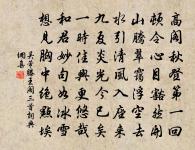 高閣秋登第一回
頓令心目豁然開
山騰翠霧浮空去
水引清風入座來
九夏炎光今已矣
一時佳興更悠哉
和君妙句如冰雪
想見胸中絕點埃
吳芾滕王閣三首詞典
網喜